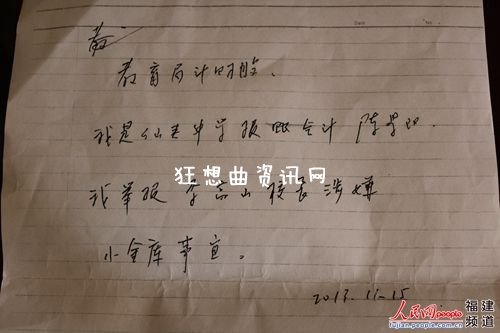 Date No.
教育局计财股、
我是仙县中学报账会计 陈
狂想曲资讯网
我举报 李 山校长涉嫌
小金库事宜。
2013.11-15
人民网 people 福建频道
fujian.people.com.cn